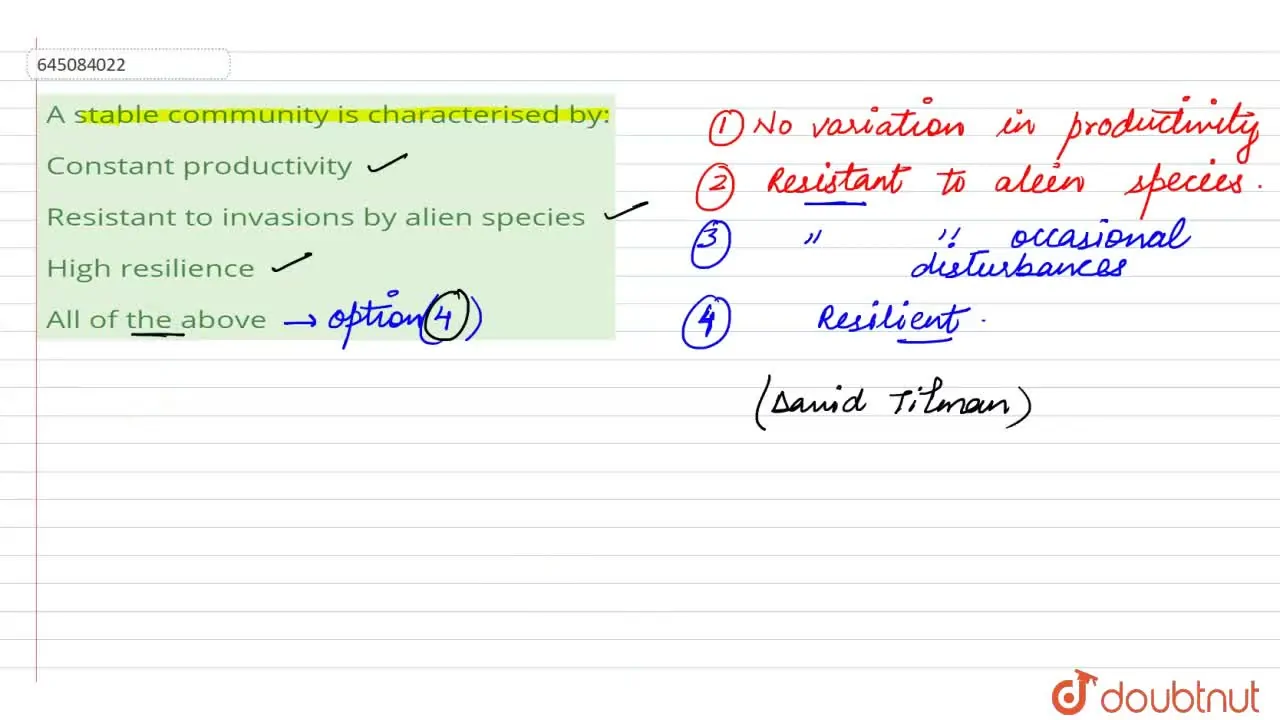 645084022
A stable community is characterised by:
Constant productivity
Resistant to invasions by alien species
High resilience
All of the above → option (4)
① No variation in productivity
② Resistant to alein species.
③ " " occasional
disturbances
④ Resilient.
(David Tilman)
doubtnut